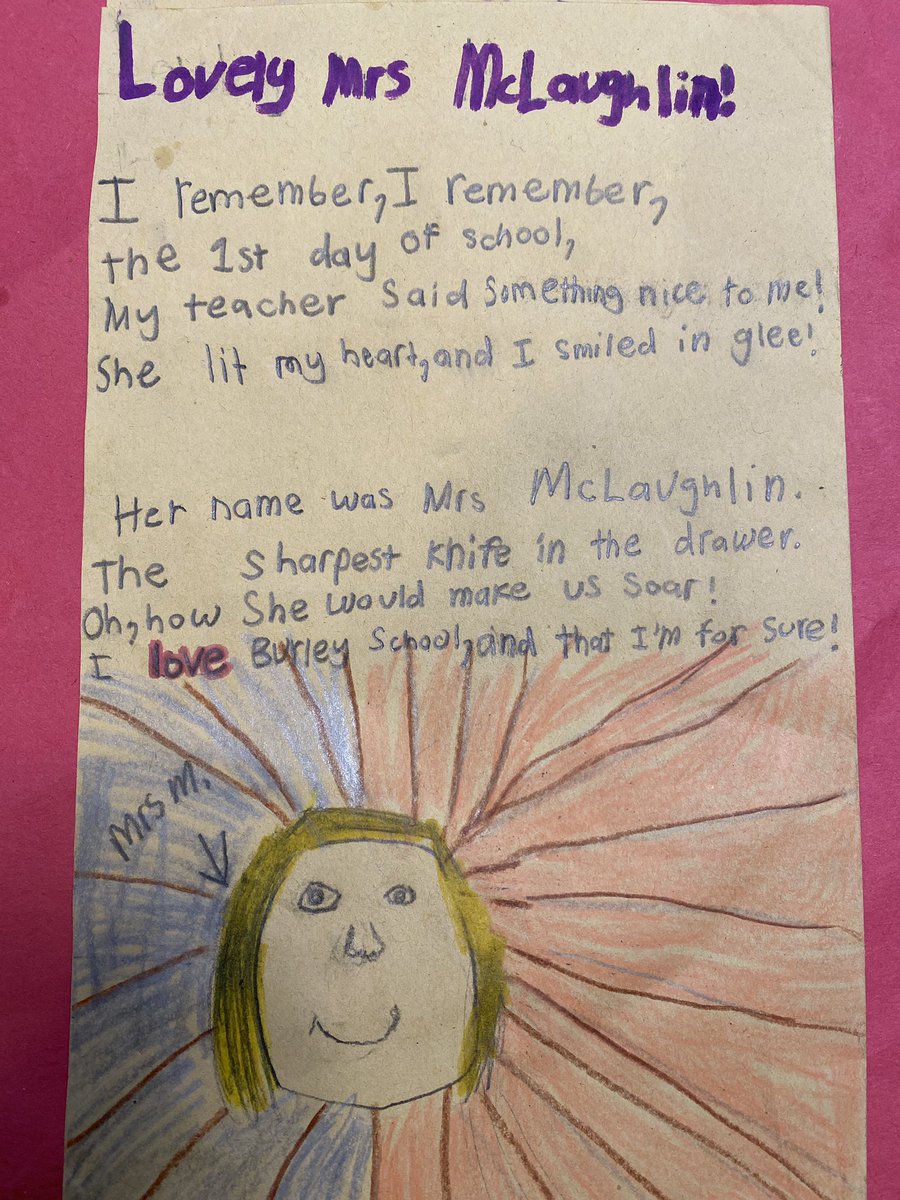 Lovely Mrs McLaughlin!
I remember, I remember,
the 1st day of school,
My teacher Said Something nice to me!
She lit my heart, and I smiled in glee!
Her name was Mrs McLaughlin.
The Sharpest knife in the drawer.
Oh, how She would make us soar!
I love Burley School, and that I'm for sure!
Mrs M.